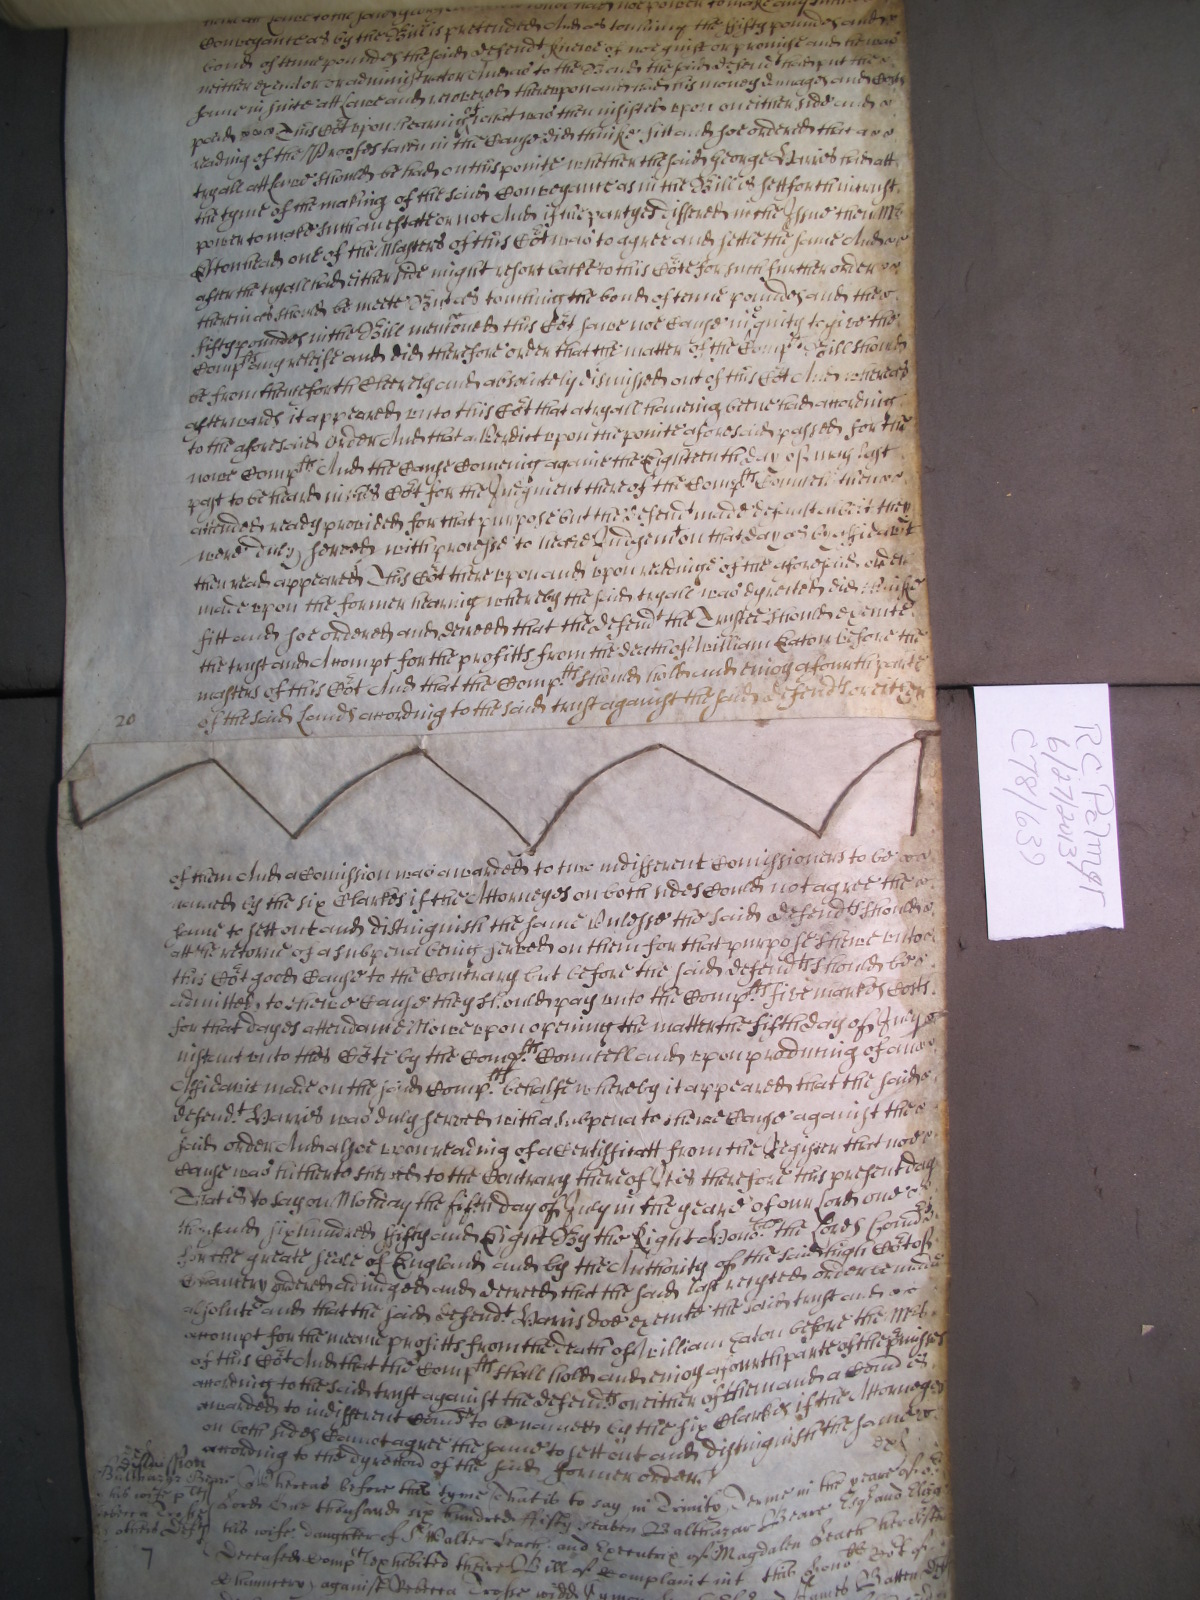 Conveyance as by the Bill is pretended And as touching the fifty poundes and
bond of tenne poundes the said defend^t knewe of noe guift or promise and he was
neither executor or administrator And as to the Bond the said defend^t had put the
same in suite att Lawe and recovered thereupon and had his money damages and Costs
paid This Co^rt upon hearing what was then insisted upon on either side and
reading of the Proofes taken in the Cause did thinke fitt and soe ordered that a
tryall att Lawe should be had on this pointe whether the said George Harris had att
the tyme of the making of the said Conveyance as in the Bill is sett forth in trust
power to make such an estate or not And if the partyes differed in the Issue then M^r
Estonhead one of the Masters of this Co^rt was to agree and settle the same And
after the tryall had either side might resort backe to this Co^rte for such further order
therein as should be meete But as touching the bond of tenne poundes and the
fifty poundes in the Bill mentoned this Co^rt sawe noe Cause in equity to give the
Comp^lts any releife and did therefore order that the matter of the Comp^lts Bill should
be from thenceforth Cleerely and absolutely dismissed out of this Co^rt And whereas
afterwards it appeared unto this Co^rt that a tryall haveing beene had according
to the aforesaid Order And that a Verdict upon the pointe aforesaid passed for the
nowe Comp^lts And the Cause Comeing againe the Eighteenth day of may last
past to be heard in this Co^rt for the Judgment thereof the Comp^lts Councell then
attended ready provided for that purpose but the defend^ts made default albeit they
were duly served with processe to heare Judgem^t on that day as by affidavit
then read appeared This Co^rt thereupon and upon reading of the aforesaid order
made upon the former hearing whereby the said tryall was dyrected did thinke
fitt and soe ordered and decreed that the defend^t the Trustee should execute
the trust and Accompt for the profitts from the death of William Eaton before the
masters of this Co^rt And that the Comp^lts should hold and enioy a fourth parte
of the said Landes according to the said trust against the said defend^ts or either
20
of them And a Comission was awarded to two indifferent Comissioners to be
named by the six Clarkes if the Attorneyes on both sides Could not agree the
same to sett out and distinguish the same Unlesse the said defend^ts should
att the retorne of a subpena being served on them for that purpose shewe unto
this Co^rt good Cause to the Contrary but before the said defend^ts should be
admitted to shewe Cause they should pay unto the Comp^lts five markes Costs
for that dayes attendance Nowe upon opening the matter the fifth day of July
instant unto this Co^rte by the Comp^lts Councell and upon produceing of an
Affidavit made on the said Comp^lts behalfe whereby it appeared that the said
defend^t Harris was duly served with a subpena to shewe Cause against the
said order And alsoe upon reading of a Certifficatt from the Register that noe
Cause was hitherto shewed to the Contrary thereof It is therefore this present day
That is to say on Monday the fifth day of July in the yeare of our Lord one
thousand sixhundred fifty and Eight By the Right Hono^ble the Lords Comi^rs
for the greate seale of England and by the Authority of the said high Co^rt of
Chancery ordered adiudged and decreed that the said last recyted order be made
absolute and that the said defend^t Harris doe execute the said trust and
accompt for the meane profitts from the death of William Eaton before the M^rs
of this Co^rt And that the Comp^lts shall hold and enioy a fourth parte of the premisses
according to the said trust against the defend^ts or either of them and a Comi^on is
awarded to indifferent Comi^rs to be named by the six Clarkes if the Attorneyes
on both sides Cannot agree the same to sett out and distinguish the same
according to the dyrection of the said former order
Balthazar Beare
& his wife pl^ts
Rebecca Crosse
& others Def^ts
7
Whereas before this tyme That is to say in Trinity Terme in the yeare of o^r
Lord One thousand six hundred fifty seaven Balthazar Beare Esq^r and
his wife daughter of S^r Walter Leach and Executrix of Magdalen Leach her sister
Deceased Comp^lts exhibited theire Bill of Complaint into this hono^ble Co^rt of
Chauncery against Rebecca Crosse widd
RC Palmer
6/27/2013
C78/639